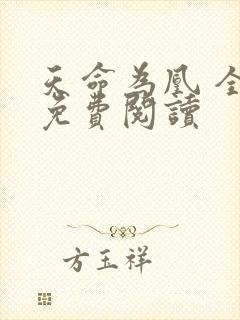 天命為凰 全
免費閱讀
方玉祥